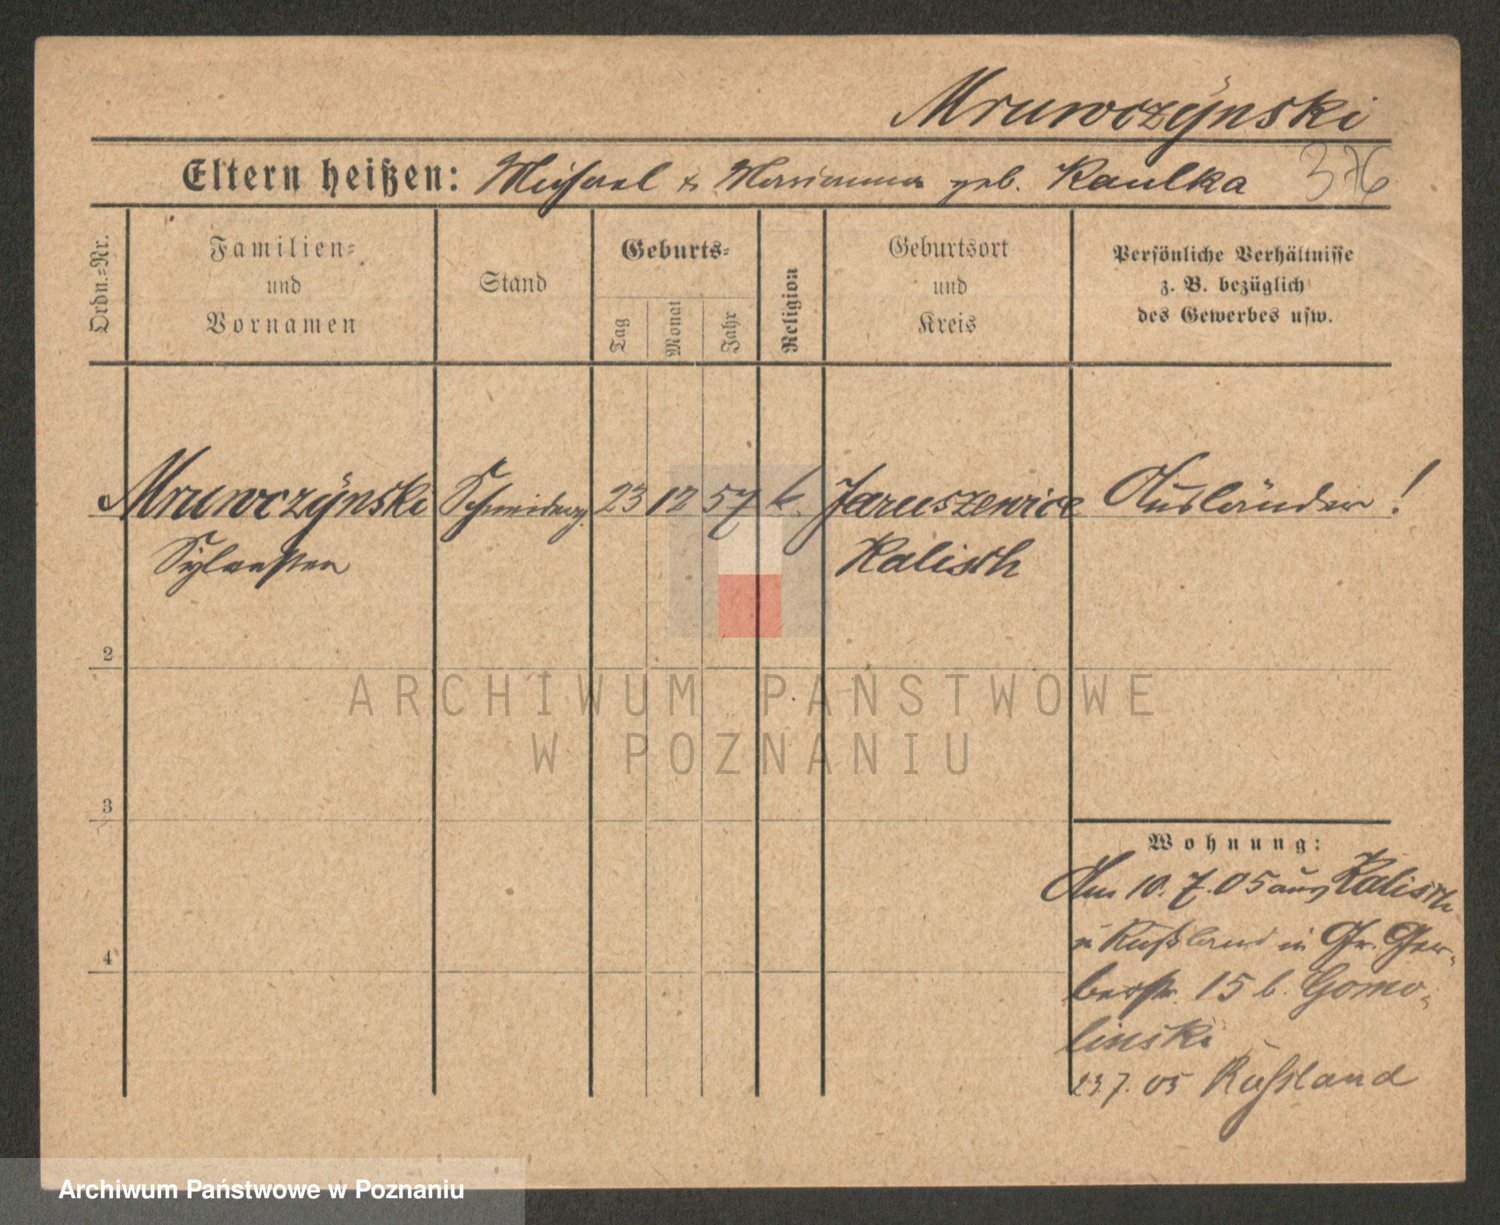 Mruwczÿnski
Eltern heißen: Michael & Marianna geb. Kaulka 376
Ordn.=Nr.
Familien=
und
Vornamen
Stand
Geburts=
Tag
Monat
Jahr
Religion
Geburtsort
und
Kreis
Persönliche Verhältnisse
z. B. bezüglich
des Gewerbes usw.
Mruwczÿnski 23 12 57 k. Jaruszewice Ausländer!
Sylvester Kalisch
2
3
4
ARCHIWUM PAŃSTWOWE
W POZNANIU
Wohnung:
Am 10.7.05 aus Kalisch
Rußland in Gr. Ger-
berstr. 15 b. Gomo-
linski
23.7.05 Rußland
Archiwum Państwowe w Poznaniu